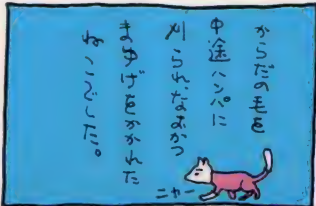 からだの毛を
中途ハンパに
刈られ、なおかつ
まゆげをかかれた
ねこでした。
ニャー